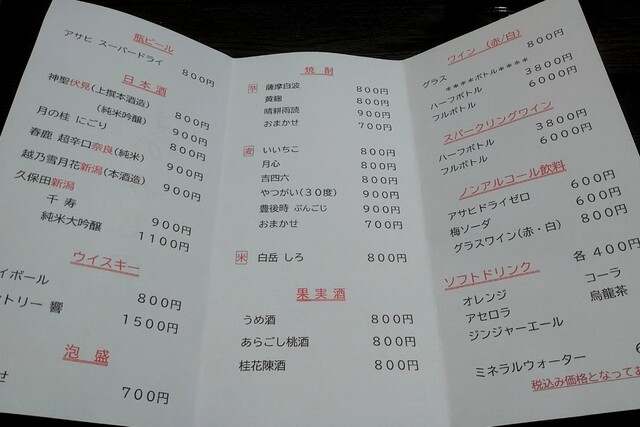 瓶ビール
アサヒ スーパードライ
800円
日本酒
神聖伏見(上撰本酒造)
800円
(純米吟醸)
900円
月の桂 にごり
800円
春鹿 超辛口奈良(純米)
900円
越乃雪月花新潟(本酒造)
900円
久保田新潟
千寿 900円
純米大吟醸 1100円
ウイスキー
イボール 800円
ントリー 響 1500円
泡盛
せ 700円
焼酎
芋 薩摩白波 800円
黄麹 800円
晴耕雨読 900円
おまかせ 700円
麦 いいちこ 800円
月心 800円
吉四六 800円
やつがい(30度) 900円
豊後時 ぶんご 900円
おまかせ 700円
米 白岳 しろ 800円
果実酒
うめ酒 800円
あらごし桃酒 800円
桂花陳酒 800円
ワイン (赤/白)
グラス 800円
****ボトル****
ハーフボトル 3800円
フルボトル 6000円
スパークリングワイン
ハーフボトル 3800円
フルボトル 6000円
ノンアルコール飲料
アサヒドライゼロ 600円
梅ソーダ 600円
グラスワイン(赤・白) 800円
ソフトドリンク 各400円
オレンジ コーラ
アセロラ 烏龍茶
ジンジャーエール
ミネラルウォーター 6
税込み価格となってお